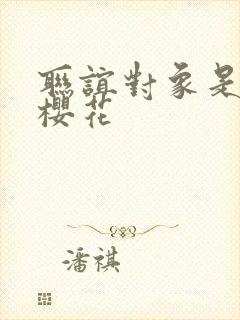 聯誼對象是
櫻花
潘祺